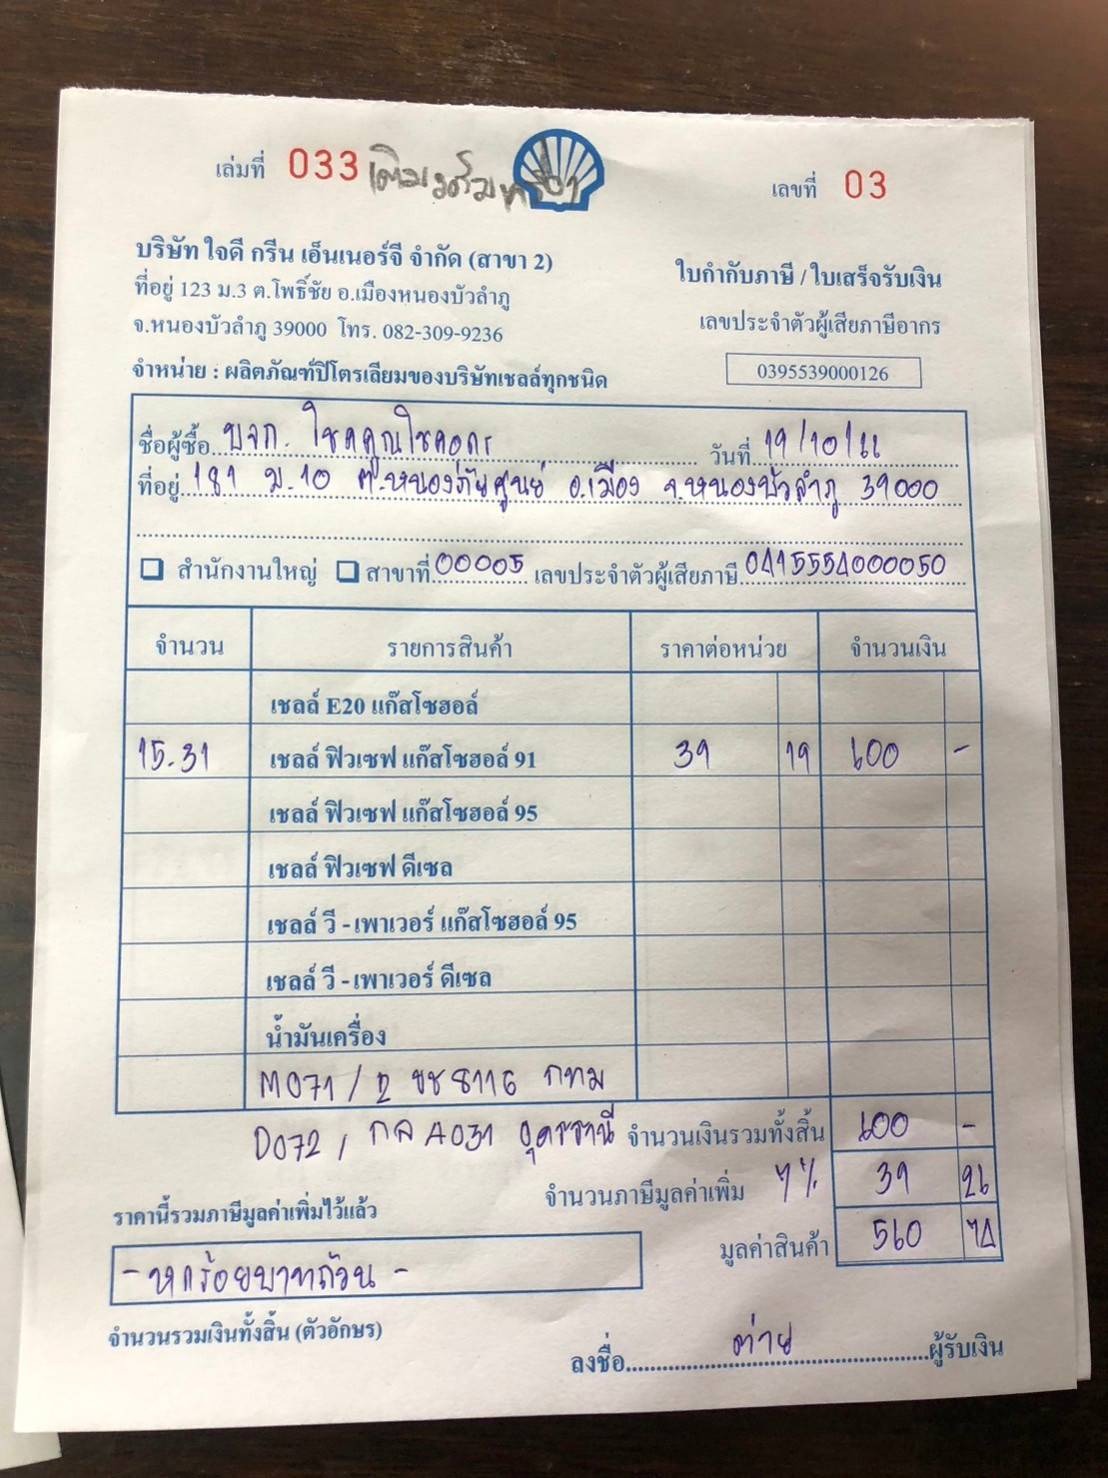 เล่มที่ 033 เลขที่ 03
บริษัท ใจดี กรีน เอ็นเนอร์จี จำกัด (สาขา 2)
ใบกำกับภาษี / ใบเสร็จรับเงิน
ที่อยู่ 123 ม.3 ต.โพธิ์ชัย อ.เมืองหนองบัวลำภู
จ.หนองบัวลำภู 39000 โทร. 082-309-9236
เลขประจำตัวผู้เสียภาษีอากร
จำหน่าย : ผลิตภัณฑ์ปิโตรเลียมของบริษัทเชลล์ทุกชนิด
0395539000126
ชื่อผู้ซื้อ บจก. โชคคูณโชคอดร วันที่ 19/10/66
ที่อยู่ 181 ม.10 ต.หนองภัยศูนย์ อ.เมือง จ.หนองบัวลำภู 39000
สำนักงานใหญ่ สาขาที่ 00005 เลขประจำตัวผู้เสียภาษี 0415554000050
จำนวน รายการสินค้า ราคาต่อหน่วย จำนวนเงิน
เชลล์ E20 แก๊สโซฮอล์
15.31 เชลล์ ฟิวเซฟ แก๊สโซฮอล์ 91 39 19 600 -
เชลล์ ฟิวเซฟ แก๊สโซฮอล์ 95
เชลล์ ฟิวเซฟ ดีเซล
เชลล์ วี - เพาเวอร์ แก๊สโซฮอล์ 95
เชลล์ วี - เพาเวอร์ ดีเซล
น้ำมันเครื่อง
M071 / 2 ขช 8116 กทม
D072 / กล A031 อุดรธานี จำนวนเงินรวมทั้งสิ้น 600 -
จำนวนภาษีมูลค่าเพิ่ม 7% 39 26
ราคานี้รวมภาษีมูลค่าเพิ่มไว้แล้ว
มูลค่าสินค้า 560 74
- หกร้อยบาทถ้วน -
จำนวนรวมเงินทั้งสิ้น (ตัวอักษร)
ลงชื่อ ต่าย ผู้รับเงิน